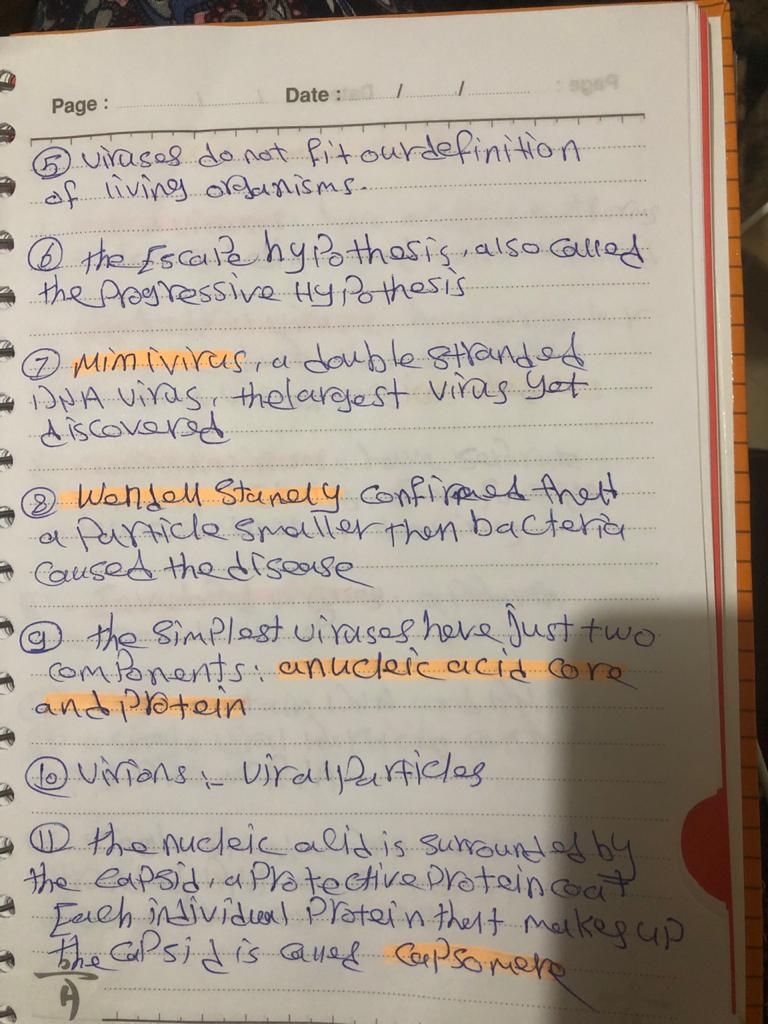 Page : Date : / /
⑤ viruses do not fit our definition
of living organisms.
⑥ the Escape hypothesis, also called
the progressive Hypothesis
⑦ Mimivirus, a double stranded
DNA virus, the largest virus yet
discovered
⑧ Wendell Stanely confirmed that
a particle smaller then bacteria
caused the disease
⑨ the simplest viruses have just two
components: a nucleic acid core
and protein
⑩ Virions :- Viral particles
⑪ the nucleic acid is surrounded by
the capsid, a protective protein coat
Each individual protein that makes up
the capsid is called capsomere